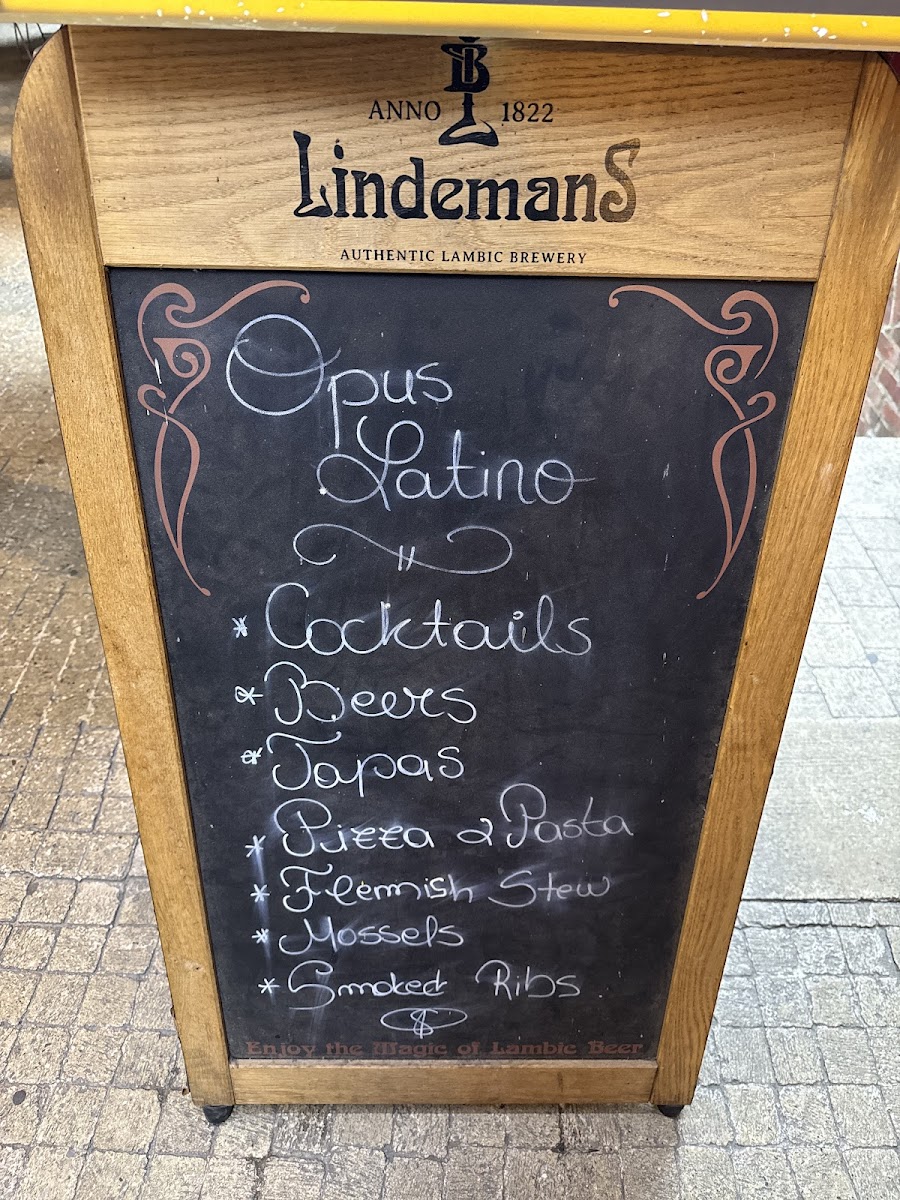 ANNO 1822
LindemanS
AUTHENTIC LAMBIC BREWERY
Opus
Latino
* Cocktails
* Beers
* Tapas
* Pizza & Pasta
* Flemish Stew
* Mossels
* Smoked Ribs
Enjoy the Magic of Lambic Beer